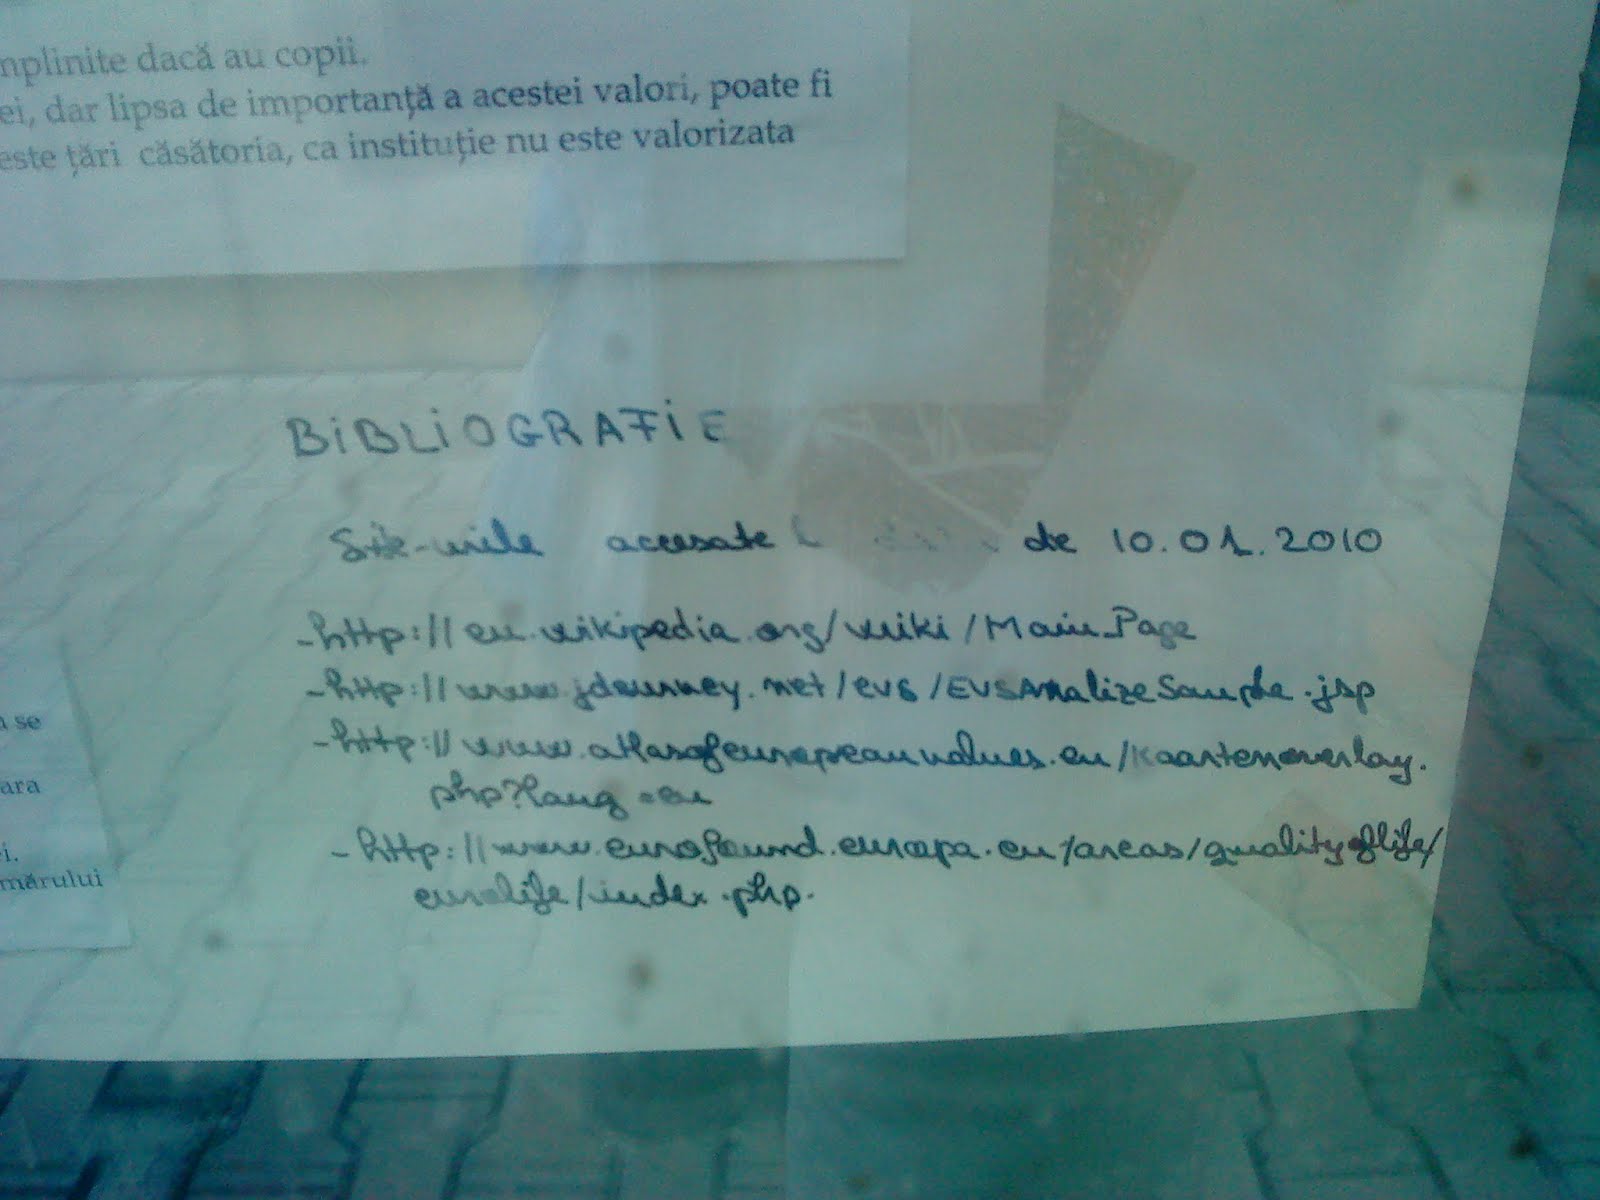 mplinite dacă au copii.
ei, dar lipsa de importanță a acestei valori, poate fi
este țări căsătoria, ca instituție nu este valorizata
BIBLIOGRAFIE
Site-urile accesate de 10.01.2010
-http://en.wikipedia.org/wiki/Main_Page
-http://www.jdsurvey.net/evs/EVSAnalizeSample.jsp
-http://www.atlasofeuropeanvalues.eu/kaartenoverlay.
php?lang=en
-http://www.eurofound.europa.eu/areas/qualityoflife/
eurolife/index.php.
se
ara
i.
mărului